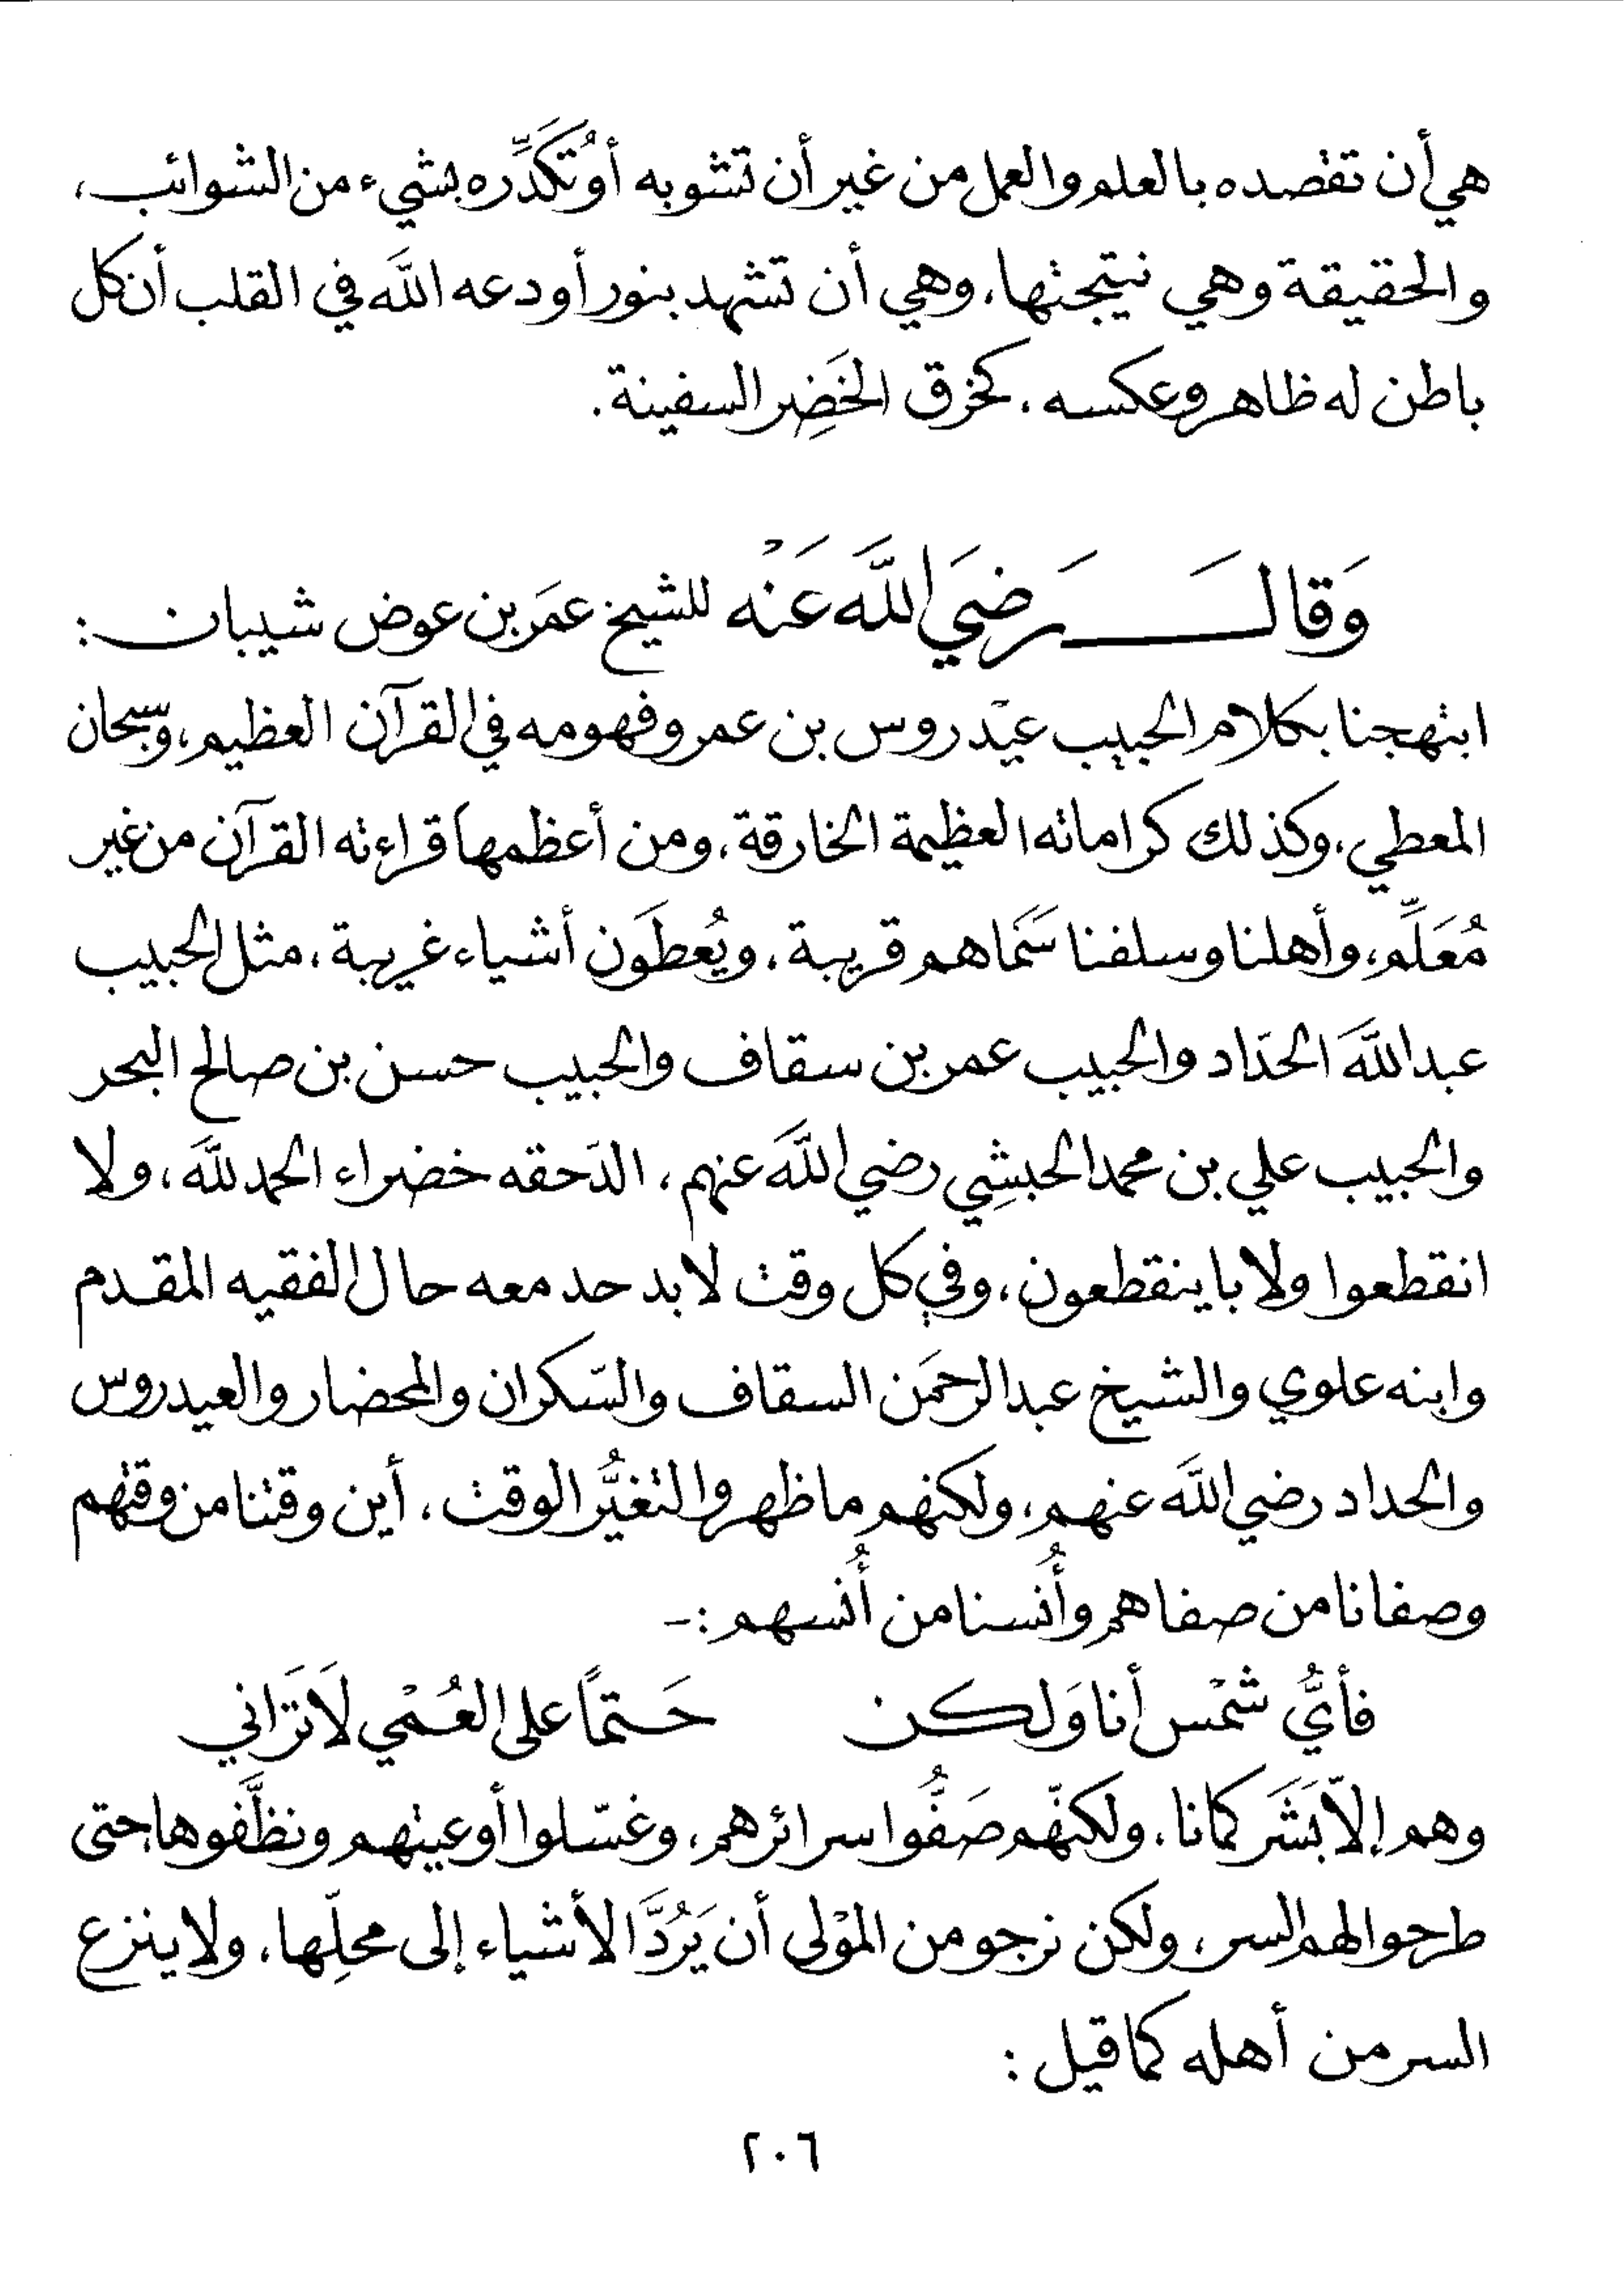 هي أن تقصده بالعلم والعمل من غير أن تشوبه أو تُكَدِّره بشيء من الشوائب،
والحقيقة وهي نتيجتها، وهي أن تشهد بنور أودعه اللَّه في القلب أن كل
باطن له ظاهر وعكسه، كخرق الخَضِر السفينة.
وَقالَ رَضيَ اللَّه عَنْه للشيخ عمَر بن عوض شيبان:
ابتهجنا بكلام الحبيب عيْدروس بن عمر وفهومه في القرآن العظيم، وسبحان
المعطي، وكذلك كراماته العظيمة الخارقة، ومن أعظمها قراءته القرآن من غير
مُعَلِّم، وأهلنا وسلفنا سَمَاهم قريبة، ويُعطَون أشياء غريبة، مثل الحبيب
عبداللَّه الحدّاد والحبيب عمر بن سقاف والحبيب حسن بن صالح البحر
والحبيب علي بن محمد الحبشِي رضي اللَّه عنهم، الدّحقه خضراء الحمد للَّه، ولا
انقطعوا ولا با ينقطعون، وفي كل وقت لا بد حد معه حال الفقيه المقدم
وابنه علوي والشيخ عبدالرحمَن السقاف والسّكران والمحضار والعيدروس
والحداد رضي اللَّه عنهم، ولكنهم ما ظهروا لتغيُّر الوقت، أين وقتنا من وقتهم
وصفانا من صفاهم وأُنسنا من أُنسهم :-
فأيُّ شمْس أنا وَلكن حَتماً على العُمْي لَا تَرَاني
وهم إلاّ بَشَر كمانا، ولكنّهم صَفُّوا سرائرهم، وغسّلوا أوعيتهم ونظَّفوها حتى
طرحوا لهم السر، ولكن نرجو من الموْلى أن يَرُدَّ الأشياء إلى محلِّها، ولا ينزع
السر من أهله كما قيل :
٢٠٦